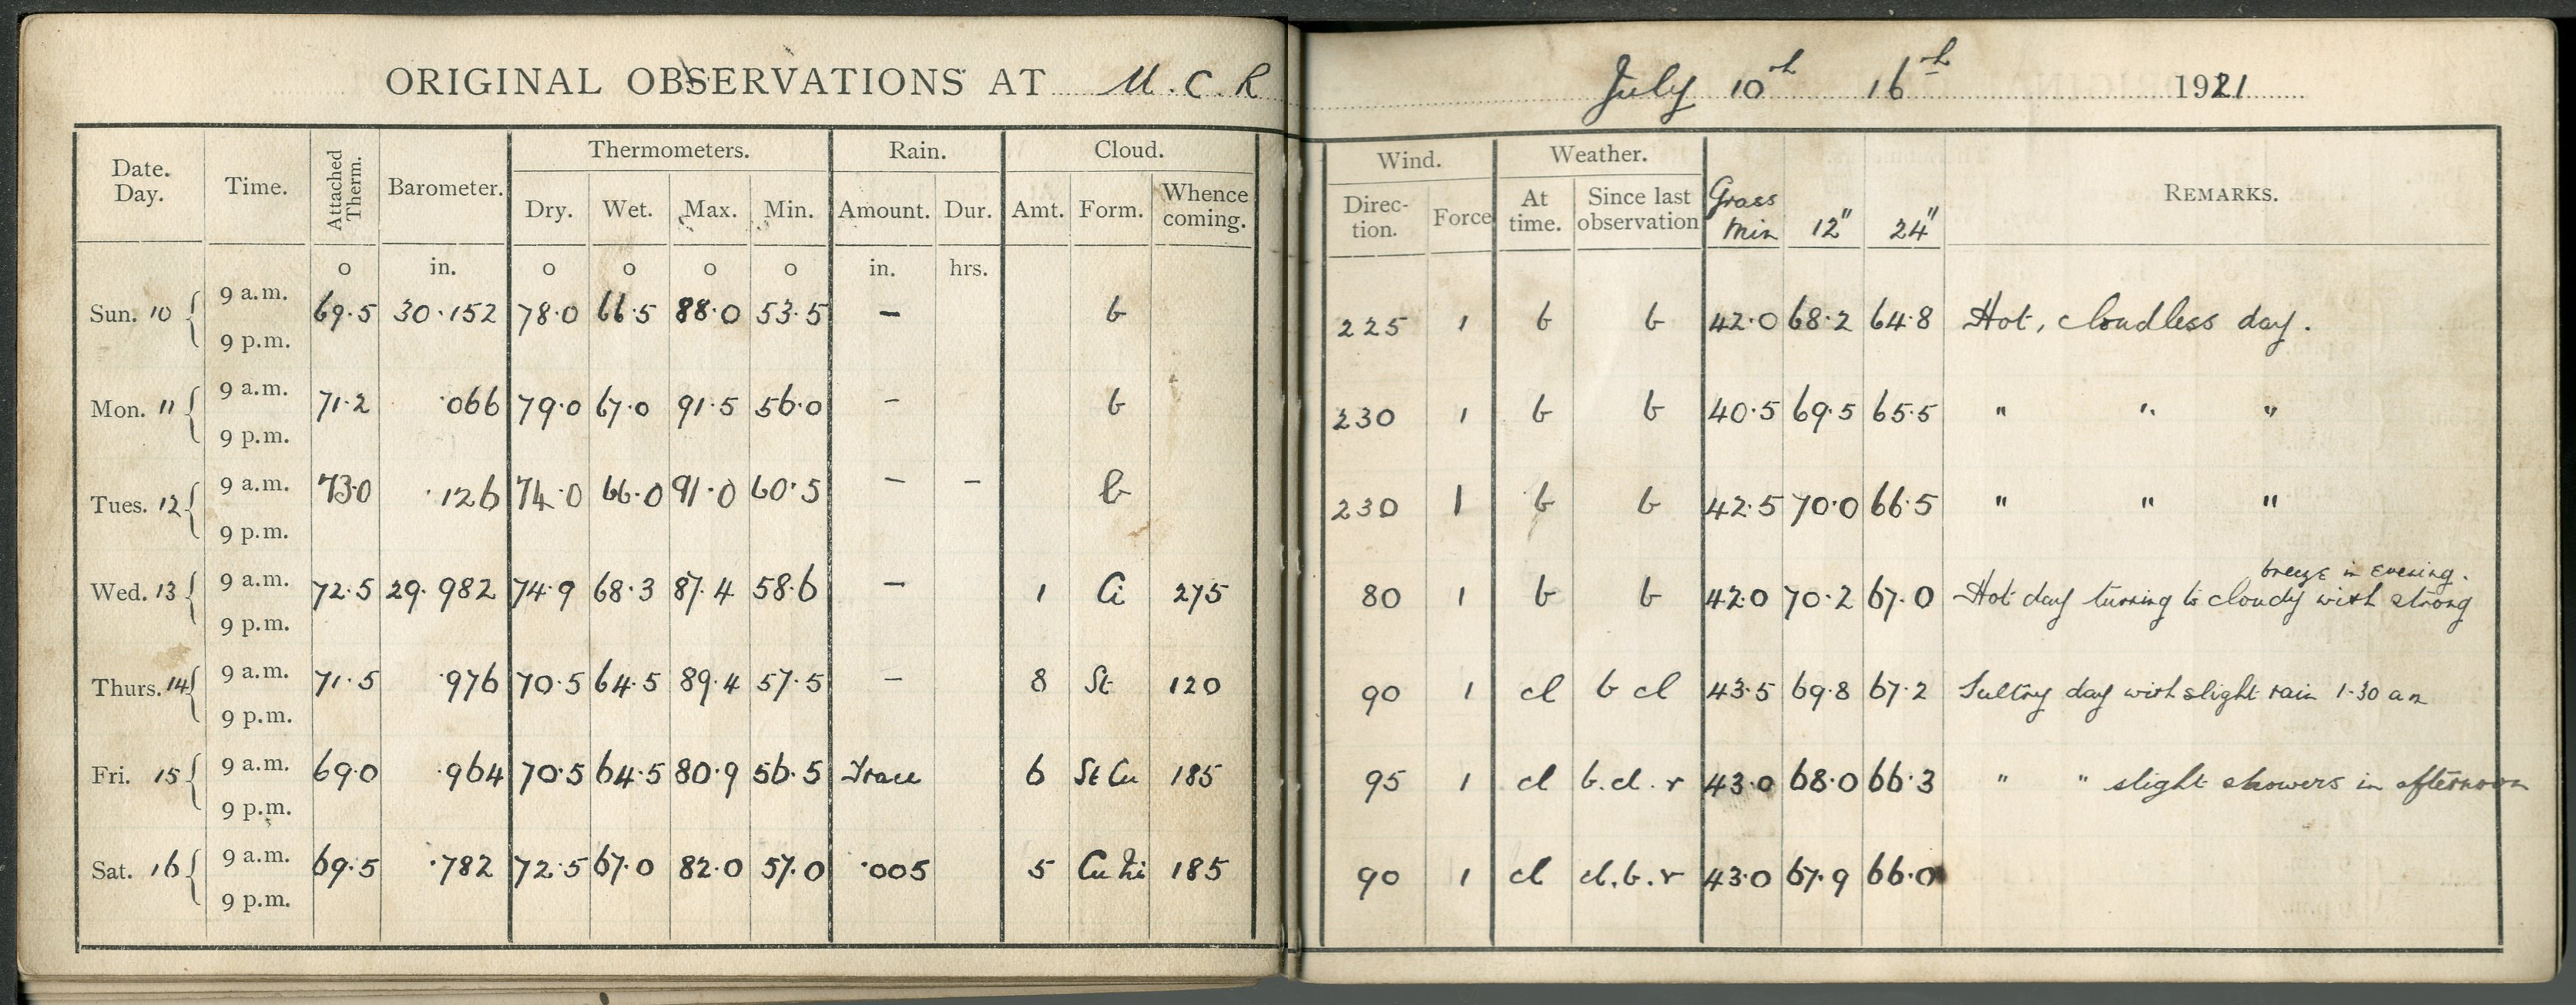 ORIGINAL OBSERVATIONS AT U.C.R July 10th 16th 1921
Date. Day. Time. Attached Therm. Barometer. Thermometers. Rain. Cloud. Wind. Weather. Grass Min 12" 24" REMARKS.
Dry. Wet. Max. Min. Amount. Dur. Amt. Form. Whence coming. Direc- tion. Force At time. Since last observation
o in. o o o o in. hrs.
Sun. 10 9 a.m. 69.5 30.152 78.0 66.5 88.0 53.5 — b 225 1 b b 42.0 68.2 64.8 Hot, cloudless day.
9 p.m.
Mon. 11 9 a.m. 71.2 .066 79.0 67.0 91.5 56.0 — b 230 1 b b 40.5 69.5 65.5 " " "
9 p.m.
Tues. 12 9 a.m. 73.0 .126 74.0 66.0 91.0 60.5 — — b 230 1 b b 42.5 70.0 66.5 " " "
9 p.m.
breeze in evening.
Wed. 13 9 a.m. 72.5 29.982 74.9 68.3 87.4 58.6 — 1 Ci 275 80 1 b b 42.0 70.2 67.0 Hot day turning to cloudy with strong
9 p.m.
Thurs. 14 9 a.m. 71.5 .976 70.5 64.5 89.4 57.5 — 8 St 120 90 1 cl b cl 43.5 69.8 67.2 Sultry day with slight rain 1.30 am
9 p.m.
Fri. 15 9 a.m. 69.0 .964 70.5 64.5 80.9 56.5 Trace 6 St Cu 185 95 1 cl b.cl.r 43.0 68.0 66.3 " " slight showers in afternoon
9 p.m.
Sat. 16 9 a.m. 69.5 .782 72.5 67.0 82.0 57.0 .005 5 Cu 185 90 1 cl cl.b.r 43.0 67.9 66.0
9 p.m.